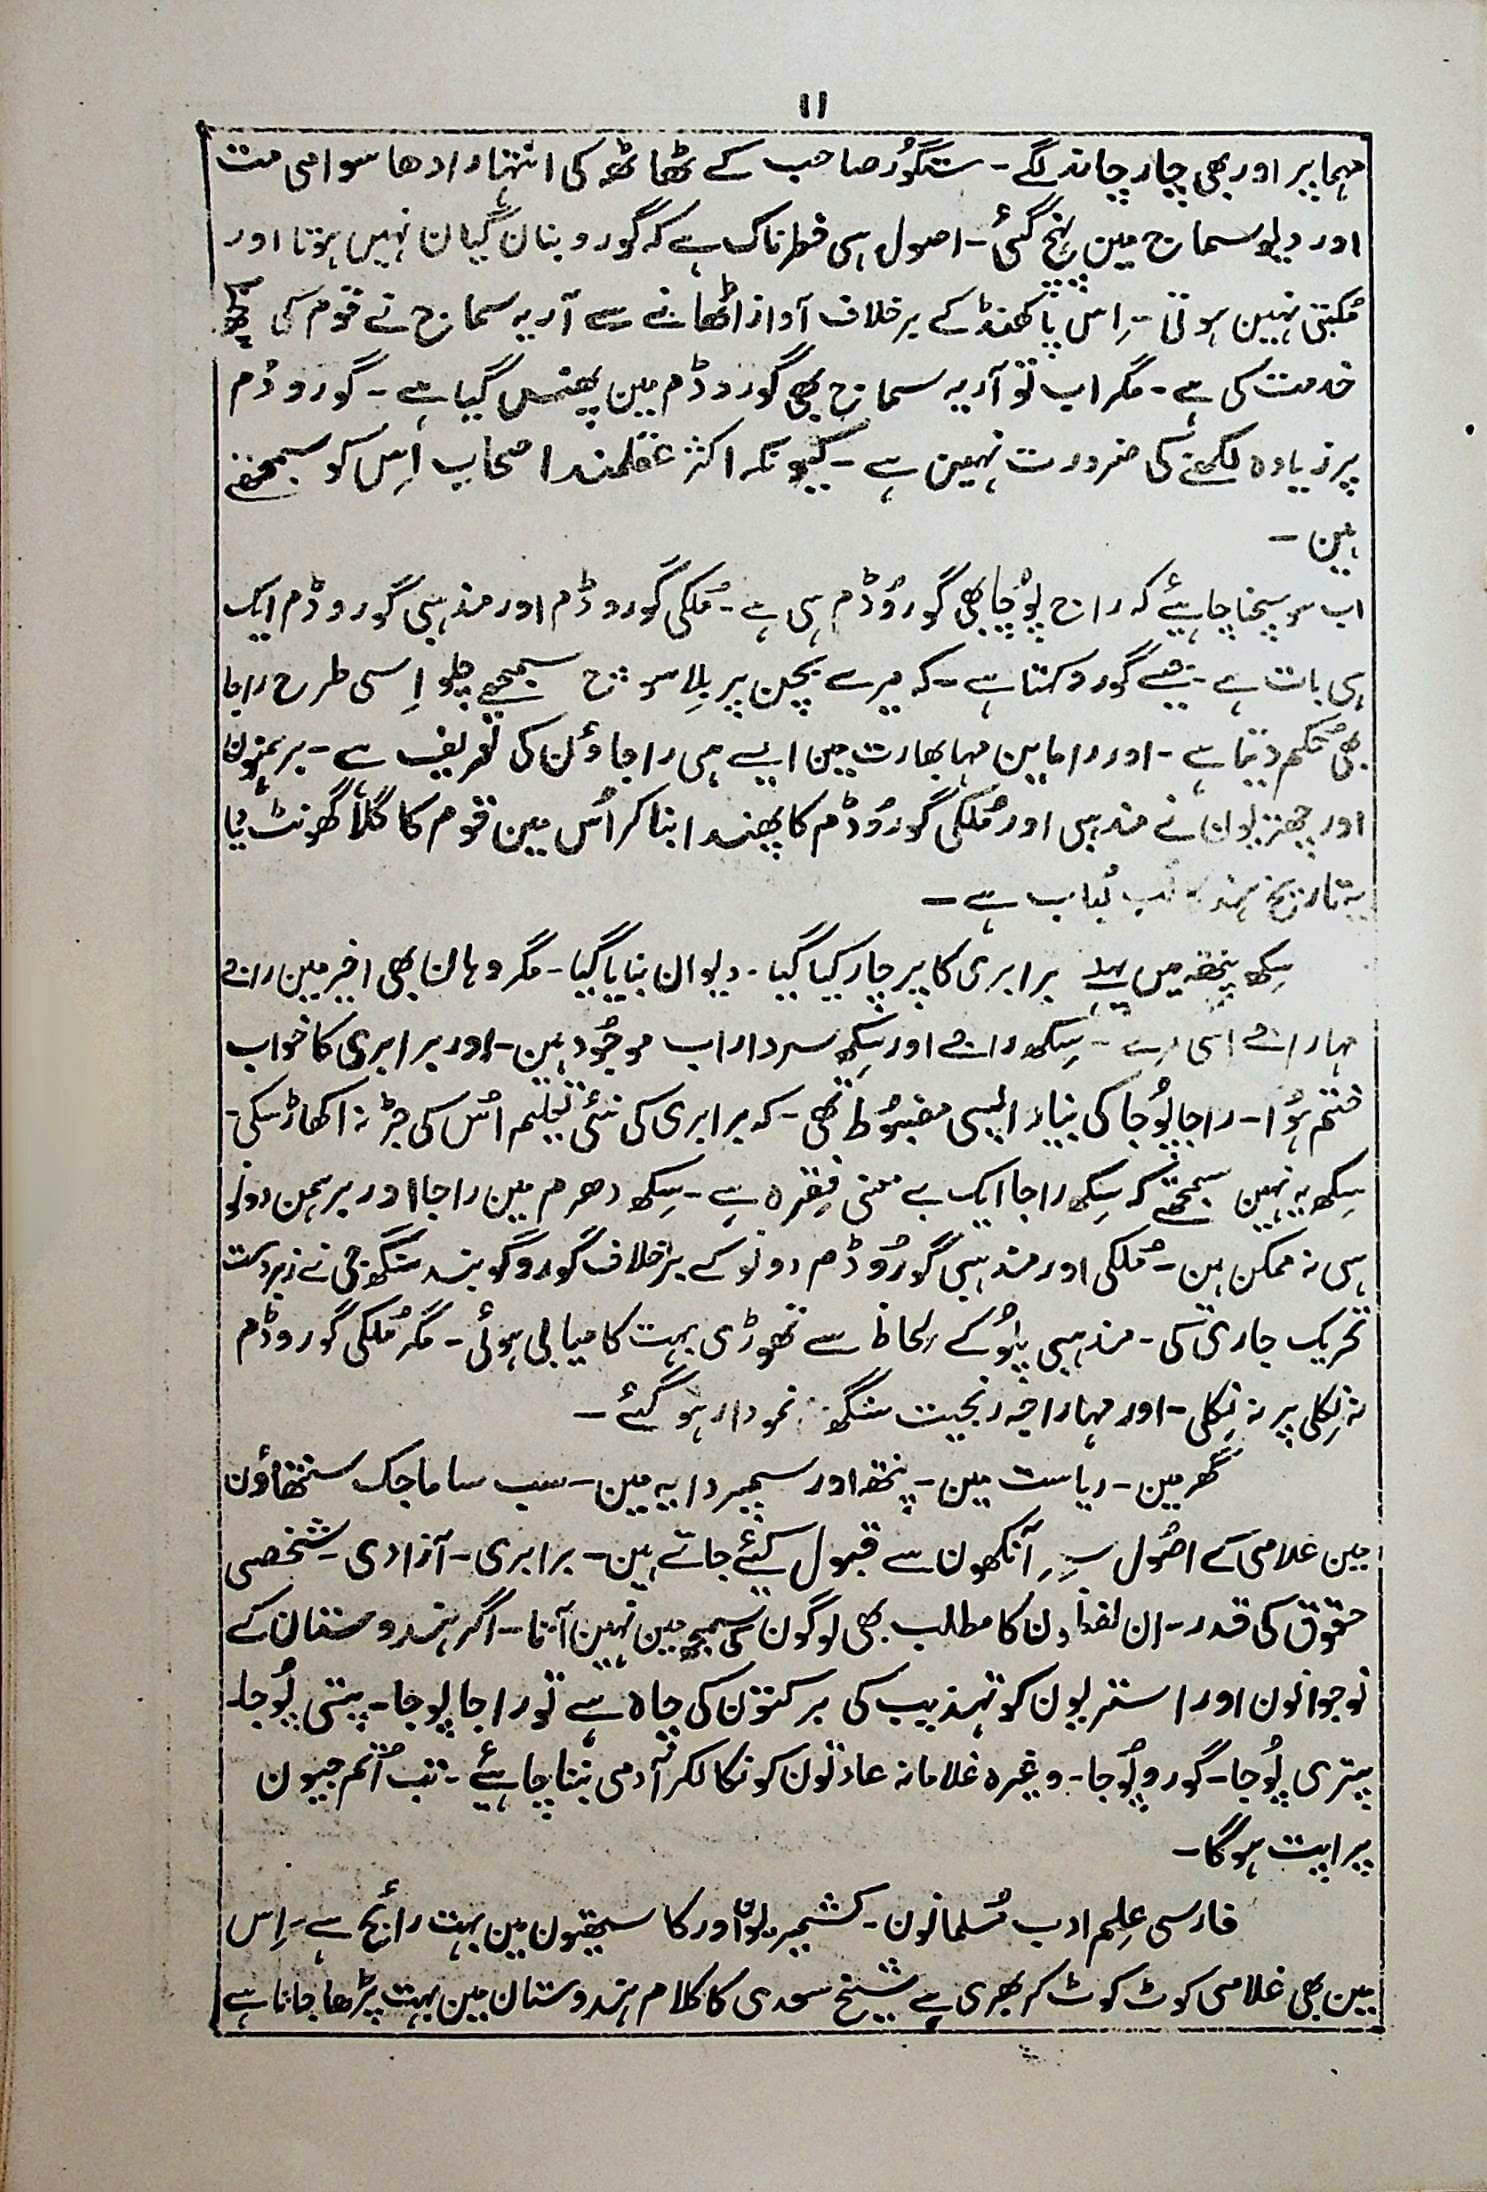 ۱۱
مہما پر اور بھی چار چاند لگے۔ ستگورُ صاحب کے ٹھاٹھ کی انتہا رادھا سوامی مت
اور دیو سماج مین پہنچ گئی۔ اصول ہی خطرناک ہے کہ گورو بنان گیان نہیں ہوتا اور
مُکتی نہین ہوتی۔ اِس پاکھنڈ کے برخلاف آواز اٹھانے سے آریہ سماج نے قوم کی کچھ
خدمت کی ہے۔ مگر اب تو آریہ سماج بھی گوروڈم مین پھنس گیا ہے۔ گوروڈم
پر زیادہ لکھنے کی ضرورت نہین ہے۔ کیونکہ اکثر عقلمند اصحاب اِس کو سمجھتے
ہین۔
اب سوچنا چاہیئے کہ راج پُوجا بھی گورُوڈم ہی ہے۔ مُلکی گوروڈم اور مذہبی گوروڈم ایک
ہی بات ہے۔ جیسے گورو کہتا ہے۔ کہ میرے بچن پر بلا سوچ سمجھے چلو اِسی طرح راجا
بھی حُکم دیتا ہے۔ اور رامایٔن مہابھارت مین ایسے ہی راجاؤن کی تعریف ہے۔ برہمنون
اور چھتریون نے مذہبی اور مُلکی گورُوڈم کا پھندا بنا کر اُس مین قوم کا گلا گھونٹ دیا
یہ تاریخ ہند کا لُب لُباب ہے۔
سِکھ پنتھ میں پہلے برابری کا پرچار کیا گیا۔ دیوان بنایا گیا۔ مگر وہان بھی اخیر مین راجے
مہاراجے آ ہی مرے۔ سِکھ راجے اور سِکھ سردار اب موجُود ہین۔ اور برابری کا خواب
ختم ہُوا۔ راجا پُوجا کی بنیاد ایسی مضبُوط تھی۔ کہ برابری کی نئی تعلیم اُس کی جڑ نہ اکھاڑ سکی۔
سِکھ یہ نہین سمجھتے کہ سِکھ راجا ایک بے معنی فِقرہ ہے۔ سِکھ دھرم مین راجا اور برہمن دونو
ہی نہ ممکن ہین۔ مُلکی اور مذہبی گورُوڈم دونو کے برخلاف گورو گوبند سنگھ جی نے زبردست
تحریک جاری کی۔ مذہبی پہلُو کے لحاظ سے تھوڑی بہت کامیابی ہوئی۔ مگر مُلکی گوروڈم
نہ نِکلی پر نہ نِکلی۔ اور مہاراجہ رنجیت سنگھ نمودار ہو گئے۔
گھر مین۔ ریاست مین۔ پنتھ اور سمپردایہ مین۔ سب ساماجک سنتھاؤن
مین غلامی کے اصُول سر آنکھون سے قبول کیئے جاتے ہین۔ برابری۔ آزادی۔ شخصی
حقوق کی قدر۔ اِن لفظون کا مطلب بھی لوگون کی سمجھ مین نہین آتا۔ اگر ہندوستان کے
نوجوانون اور استریون کو تہذیب کی برکتون کی چاہ ہے تو راجا پوجا۔ پتی پُوجا۔
پِتری پُوجا۔ گورو پُوجا۔ وغیرہ غلامانہ عادتون کو نکالکر آدمی بننا چاہیئے۔ تب اُتم جیون
پراپت ہوگا۔
فارسی عِلم ادب مُسلمانون۔ کشمیریون اور کایستھون مین بہت رائج ہے۔ اِس
مین بھی غلامی کوٹ کوٹ کر بھری ہے شیخ سعدی کا کلام ہندوستان مین بہت پڑھا جاتا ہے